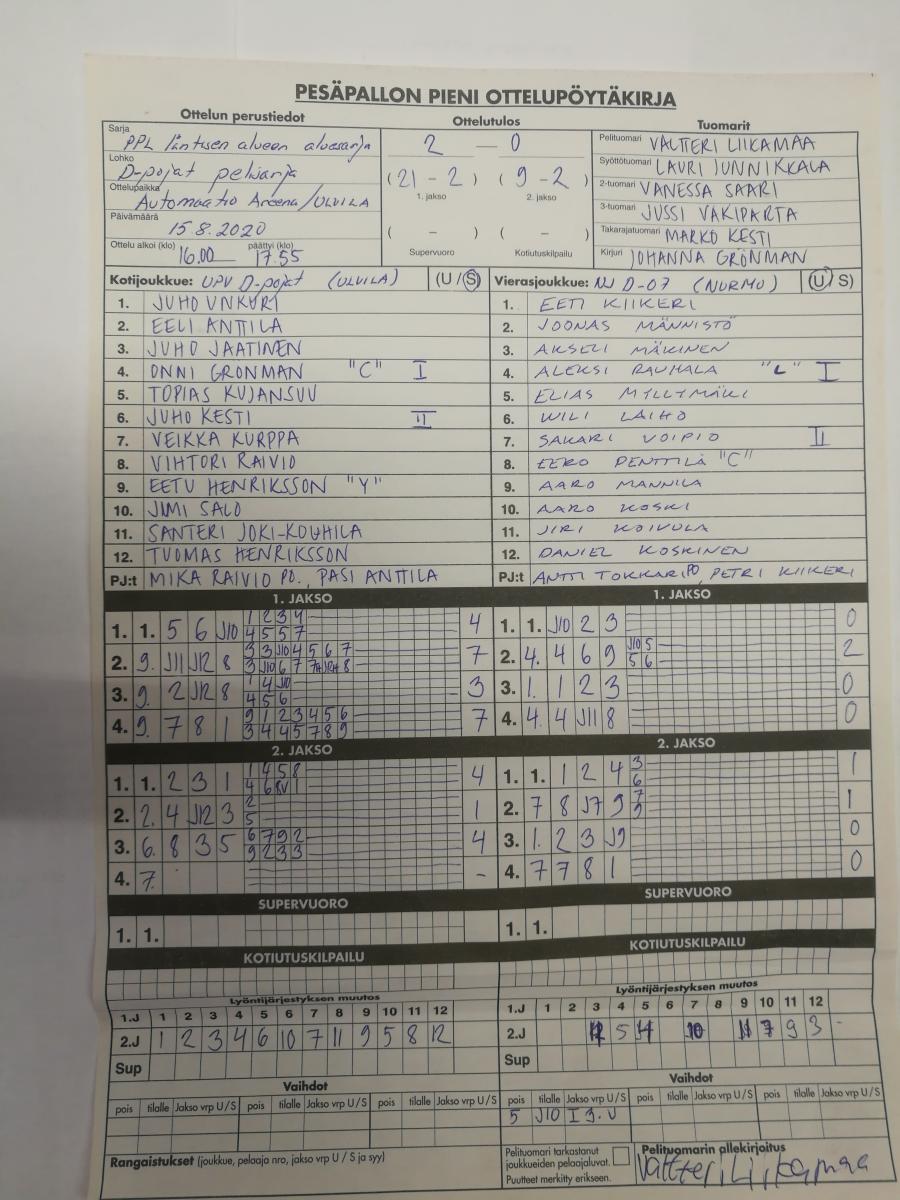 PESÄPALLON PIENI OTTELUPÖYTÄKIRJA
Ottelun perustiedot
Ottelutulos
Tuomarit
Sarja
PPL läntisen alueen aluesarja
Lohko
D-pojat pelisarja
Ottelupaikka
Automaatio Areena/ULVILA
Päivämäärä
15.8.2020
Ottelu alkoi (klo) päättyi (klo)
16.00 17.55
2 — 0
(21 - 2) (9 - 2)
1. jakso 2. jakso
( - ) ( - )
Supervuoro Kotiutuskilpailu
Pelituomari VALTTERI LIIKAMAA
Syöttötuomari LAURI JUNNIKKALA
2-tuomari VANESSA SAARI
3-tuomari JUSSI VAKIPARTA
Takarajatuomari MARKO KESTI
Kirjuri JOHANNA GRÖNMAN
Kotijoukkue: UPV D-pojat (ULVILA) (U/S)
1. JUHO UNKURI
2. EELI ANTTILA
3. JUHO JAATINEN
4. ONNI GRÖNMAN "C" I
5. TOPIAS KUJANSUU
6. JUHO KESTI II
7. VEIKKA KURPPA
8. VIHTORI RAIVIO
9. EETU HENRIKSSON "Y"
10. JIMI SALO
11. SANTERI JOKI-KOUHILA
12. TUOMAS HENRIKSSON
PJ:t MIKA RAIVIO PO., PASI ANTTILA
Vierasjoukkue: NJ D-07 (NURMO) (U/S)
1. EETI KIIKERI
2. JOONAS MÄNNISTÖ
3. AKSELI MÄKINEN
4. ALEKSI RAUHALA "L" I
5. ELIAS MYLLYMÄKI
6. WILI LAIHO
7. SAKARI VOIPIO II
8. EERO PENTTILÄ "C"
9. AARO MANNILA
10. AARO KOSKI
11. JIRI KOIVULA
12. DANIEL KOSKINEN
PJ:t ANTTI TOKKARI PO, PETRI KIIKERI
1. JAKSO
1. 1. 5 6 J10 1 2 3 4 4
4 5 5 7
2. 9. J11 J12 8 3 3 J10 4 5 6 7 7
3 J10 6 7 7 8
3. 9. 2 J12 8 1 4 J10 3
4 5 6
4. 9. 7 8 1 9 1 2 3 4 5 6 7
3 4 4 5 7 8 9
1. JAKSO
1. 1. J10 2 3 0
2. 4. 4 6 9 J10 5 2
5 6
3. 1. 1 2 3 0
4. 4. 4 J11 8 0
2. JAKSO
1. 1. 2 3 1 1 4 5 8 4
4 6 8V 1
2. 2. 4 J12 3 2 1
5
3. 6. 8 3 5 6 7 9 2 4
9 2 3 3
4. 7. -
2. JAKSO
1. 1. 1 2 4 3 1
6
2. 7 8 J7 9 7 1
9
3. 1. 2 3 J9 0
4. 7 7 8 1 0
SUPERVUORO
1. 1.
SUPERVUORO
1. 1.
KOTIUTUSKILPAILU
KOTIUTUSKILPAILU
Lyöntijärjestyksen muutos
1.J 1 2 3 4 5 6 7 8 9 10 11 12
2.J 1 2 3 4 6 10 7 11 9 5 8 12
Sup
Lyöntijärjestyksen muutos
1.J 1 2 3 4 5 6 7 8 9 10 11 12
2.J 5 10 9 3 -
Sup
Vaihdot
pois tilalle Jakso vrp U/S pois tilalle Jakso vrp U/S pois tilalle Jakso vrp U/S
Vaihdot
pois tilalle Jakso vrp U/S pois tilalle Jakso vrp U/S pois tilalle Jakso vrp U/S
5 J10 I 3. U
Rangaistukset (joukkue, pelaaja nro, jakso vrp U / S ja syy)
Pelituomari tarkastanut
joukkueiden pelaajaluvat.
Puutteet merkitty erikseen.
Pelituomarin allekirjoitus
Valtteri Liikamaa